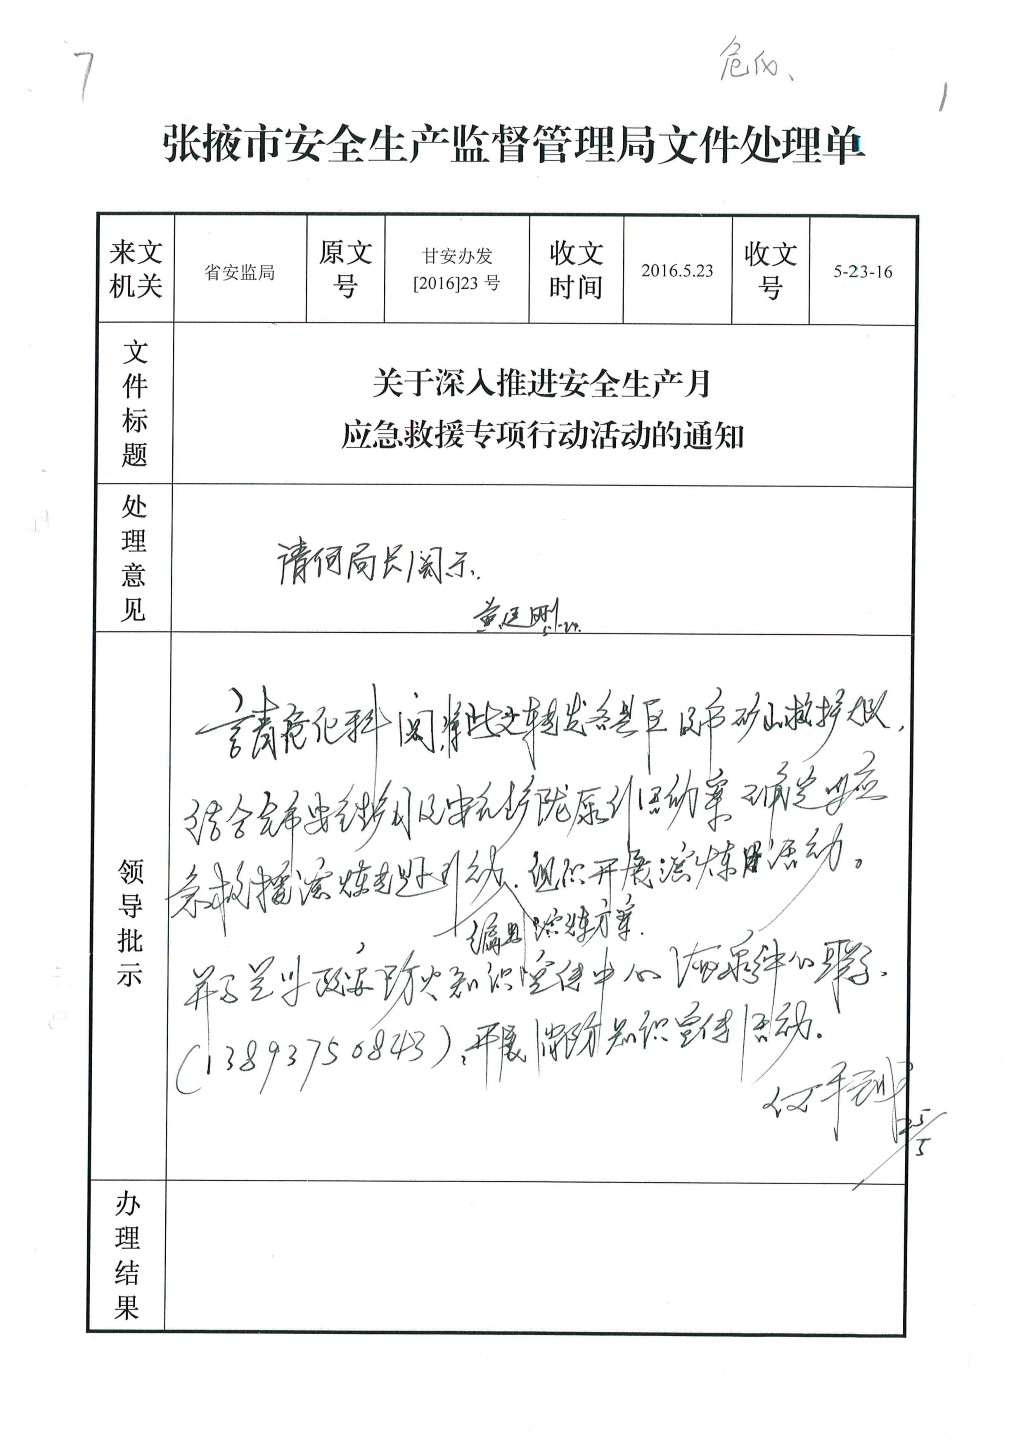 7
危化、
1
张掖市安全生产监督管理局文件处理单
来文机关 省安监局 原文号 甘安办发[2016]23 号 收文时间 2016.5.23 收文号 5-23-16
文件标题
关于深入推进安全生产月
应急救援专项行动活动的通知
处理意见
请何局长阅示.
黄廷刚
领导批示
请危化科阅,将此文转发各县区及市矿山救护大队,
结合全市安全生产月及安全生产陇原行活动方案 确定
急救援演练 组织开展演练活动。
编 演练方案.
并与兰州政安防火知识宣传中心 联系,
(13893750843),开展消防知识宣传活动.
何
25/5
办理结果